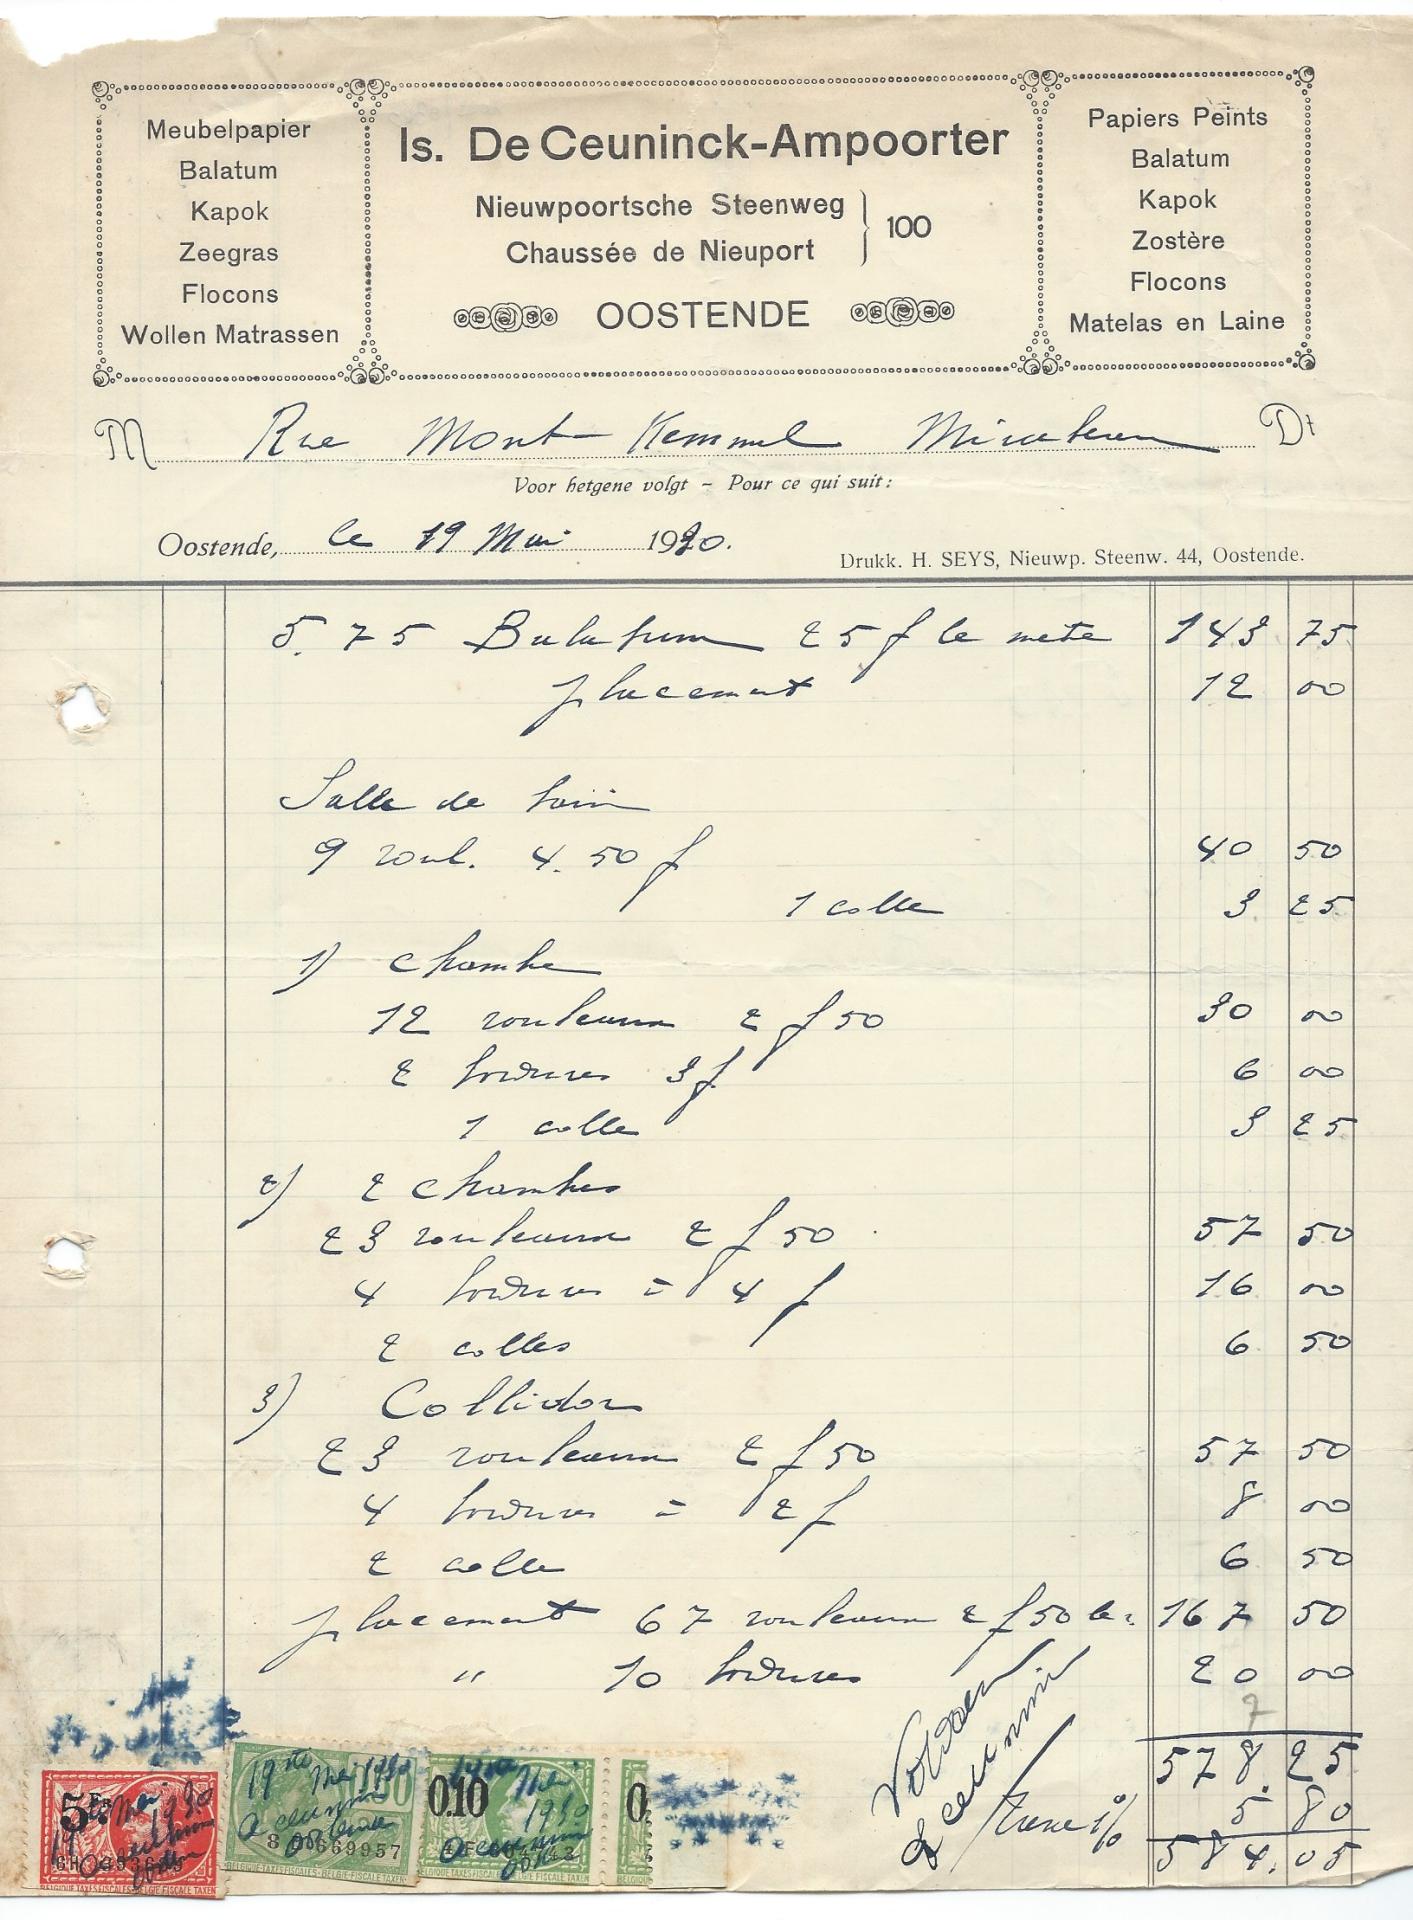 Meubelpapier
Balatum
Kapok
Zeegras
Flocons
Wollen Matrassen
Is. De Ceuninck-Ampoorter
Nieuwpoortsche Steenweg
Chaussée de Nieuport
100
OOSTENDE
Papiers Peints
Balatum
Kapok
Zostère
Flocons
Matelas en Laine
M Rue Mont Kemmel Dt
Voor hetgene volgt – Pour ce qui suit:
Oostende, le 19 Mai 1930.
Drukk. H. SEYS, Nieuwp. Steenw. 44, Oostende.
5.75 Balatum 25 f le mete 143 75
placement 12 00
Salle de bain
9 roul. 4.50 f 40 50
1 colle 3 25
1) chambe
12 rouleaux 2 f 50 30 00
2 bordures 3 f 6 00
1 colle 3 25
2) 2 chambes
23 rouleaux 2 f 50 57 50
4 bordures = 4 f 16 00
2 colles 6 50
3) Collidor
23 rouleaux 2 f 50 57 50
4 bordures = 2 f 8 00
2 colle 6 50
placement 67 rouleaux 2 f 50 le = 167 50
" 10 bordures 20 00
7
578.25
Voldaan
Deceuninck
Taxe 1% 5 80
584.05
5 Frs
19 Mai 1930
Deceuninck
19 Mai 1930
Deceuninck
669957
BELGIQUE-TAXES FISCALES-BELGIE-FISCALE TAXEN
0.10
Mei 1930
Deceuninck
BELGIQUE TAXES FISCALES BELGIE FISCALE TAXEN
0.